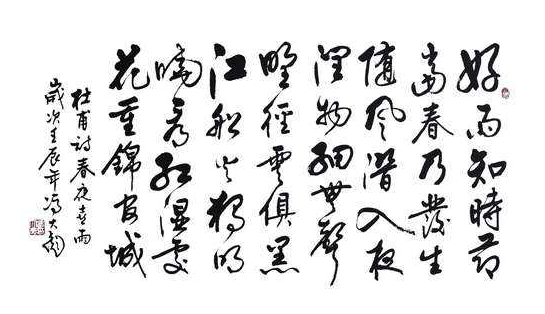 好雨知時節
當春乃發生
隨風潛入夜
潤物細無聲
野徑雲俱黑
江船火獨明
曉看紅濕處
花重錦官城
杜甫詩春夜喜雨
歲次壬辰年馮大